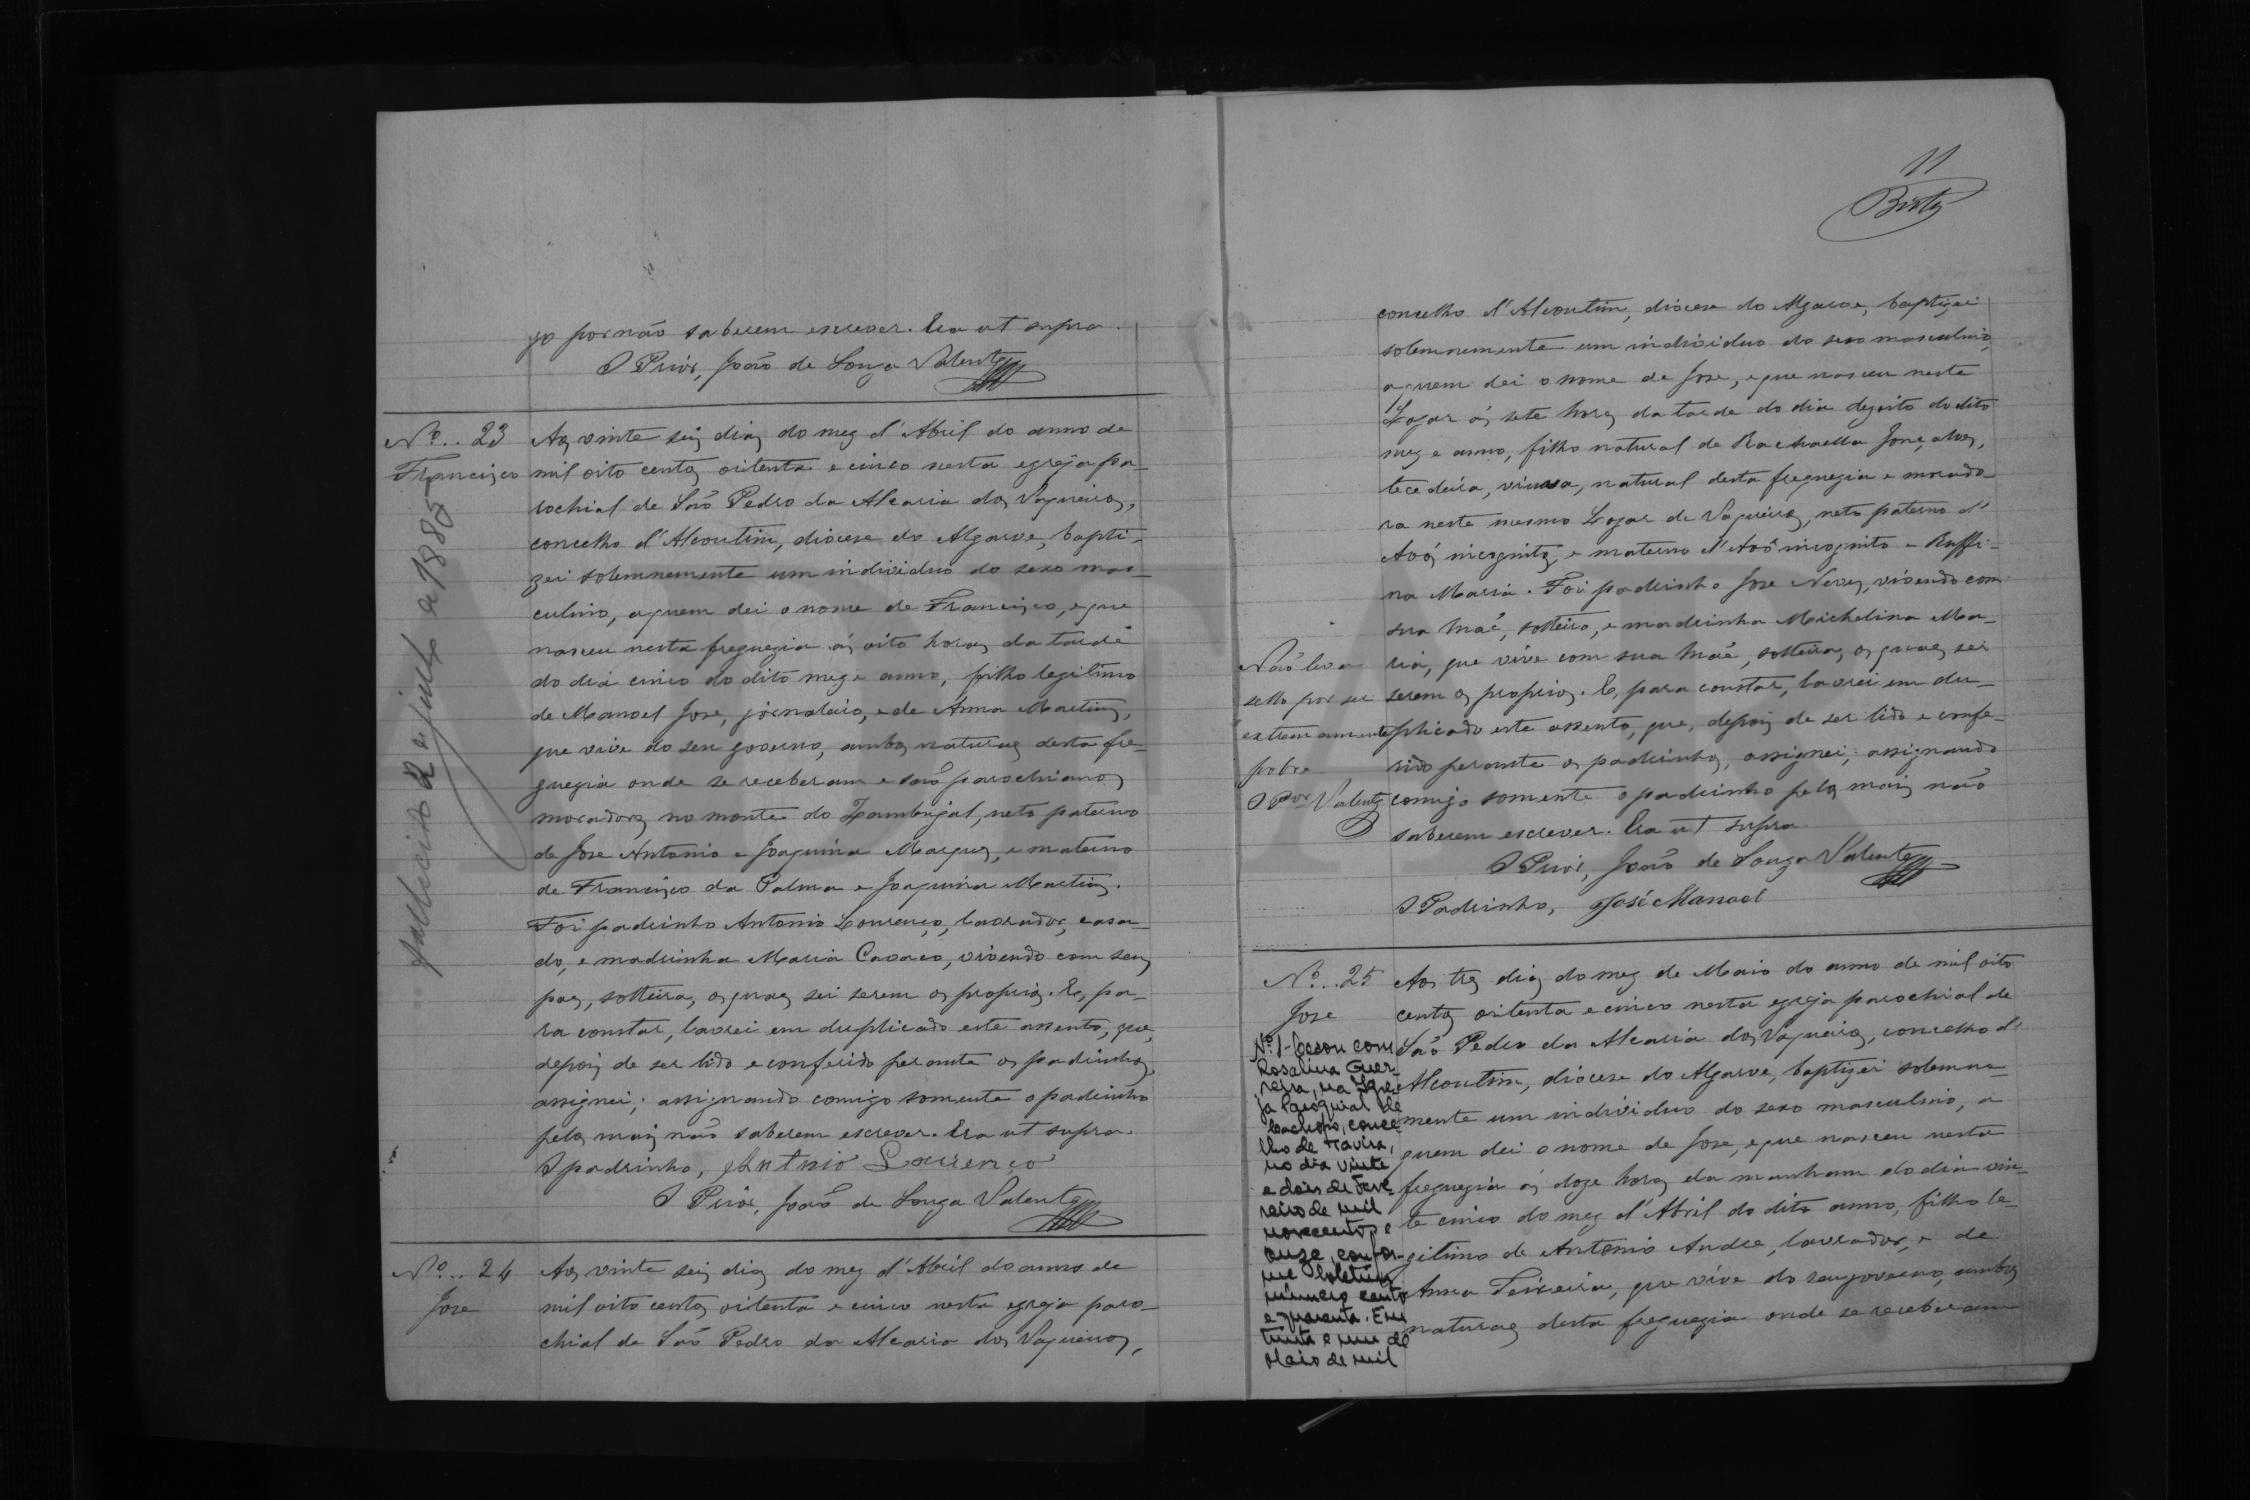 go por não saberem escrever. Era ut supra.
O Prior, João de Souza Valente
Nº.. 23
Francisco
Falleceu a 2 de julho de 1885
Aos vinte seis dias do mez d'Abril do anno de
mil oito centos oitenta e cinco nesta egreja pa-
rochial de São Pedro da Alcaria dos Vaqueiros,
concelho d'Alcoutim, diocese do Algarve, bapti-
zei solemnemente um individuo do sexo mas-
culino, a quem dei o nome de Francisco, e que
nasceu nesta freguezia ás oito horas da tarde
do dia cinco do dito mez e anno, filho legitimo
de Manoel Jose, jornaleiro, e de Anna Martins,
que vive do seu governo, ambos naturaes desta fre-
guezia onde se receberam e são parochianos
moradores no monte do Zambujal, neto paterno
de Jose Antonio e Joaquina Marques, e materno
de Francisco da Palma e Joaquina Martins.
Foi padrinho Antonio Lourenço, lavrador, casa-
do, e madrinha Maria Cavaco, vivendo com seus
paes, solteira, os quaes sei serem os proprios. E, pa-
ra constar, lavrei em duplicado este assento, que,
depois de ser lido e conferido perante os padrinhos,
assignei; assignando comigo somente o padrinho
pelos mais não saberem escrever. Era ut supra.
O padrinho, Antnio Lourenço
O Prior, João de Souza Valente
Nº.. 24
Jose
Aos vinte seis dias do mez d'Abril do anno de
mil oito centos oitenta e cinco nesta egreja paro-
chial de São Pedro da Alcaria dos Vaqueiros,
11
concelho d'Alcoutim, diocese do Algarve, baptizei
solemnemente um individuo do sexo masculino,
a quem dei o nome de Jose, e que nasceu neste
Logar ás sete horas da tarde do dia dezoito do dito
mez e anno, filho natural de Rachaella Gonçalves,
tecedeira, viuva, natural desta freguezia e morado-
ra neste mesmo Logar de Vaqueiros, neto paterno d'
Avós incognitos, e materno d'Avô incognito e Ruffi-
na Maria. Foi padrinho Jose Neves, vivendo com
sua Mãe, solteiro, e madrinha Michelina Ma-
ria, que vive com sua Mãe, solteira, os quaes sei
serem os proprios. E, para constar, lavrei em du-
plicado este assento, que, depois de ser lido e confe-
rido perante os padrinhos, assignei; assignando
comigo somente o padrinho pelos mais não
saberem escrever. Era ut supra
Não leva
sello por ser
extremamente
pobre
O Por Valente
O Prior, João de Souza Valente
O Padrinho, José Manoel
Nº.. 25
Jose
Nº 1- Casou com
Rosalina Guer-
reira, na Igre-
ja Paroquial de
Cachopo, conce-
lho de Tavira,
no dia vinte
e dois de Feve-
reiro de mil
novecentos e
onze, confor-
me boletim
número cento
e quarenta. Em
trinta e um de
Maio de mil
Aos tres dias do mez de Maio do anno de mil oito
centos oitenta e cinco nesta egreja parochial de
São Pedro da Alcaria dos Vaqueiros, concelho d'
Alcoutim, diocese do Algarve, baptizei solemne-
mente um individuo do sexo masculino, a
quem dei o nome de Jose, e que nasceu nesta
freguezia ás doze horas da manham do dia vin-
te cinco do mez d'Abril do dito anno, filho le-
gitimo de Antonio Andre, lavrador, e de
Anna Teixeira, que vive do seu governo, ambos
naturaes desta freguezia onde se receberam